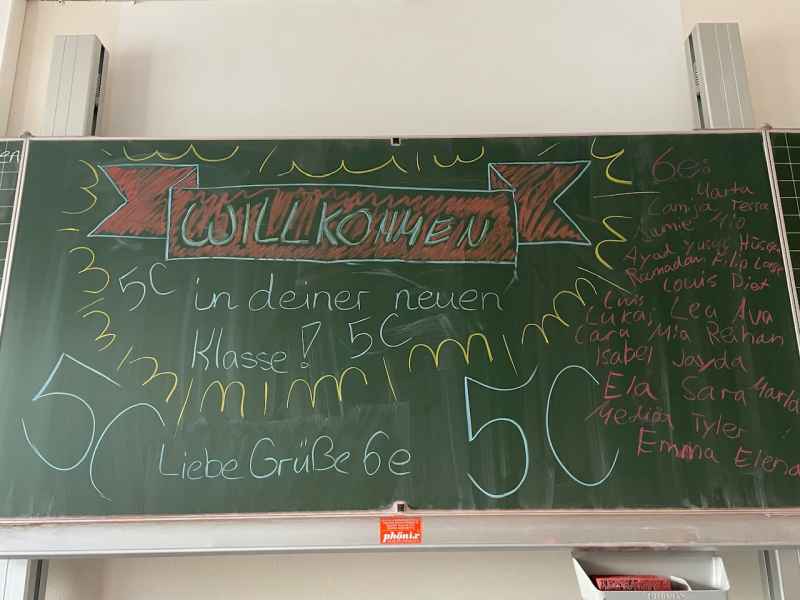 WILLKOMMEN
5C in deiner neuen
Klasse! 5C
5C
5C
Liebe Grüße 6e
6e:
Marta
Lamija Tessa
Jamie Mio
Ayad Yusuf
Ramadan Filip
Louis Piet
Luis
Luka, Lea Ava
Cara Mia Reihan
Isabel Jayda
Ela Sara Marla
Medina Tyler
Emma Elena
en
phönix